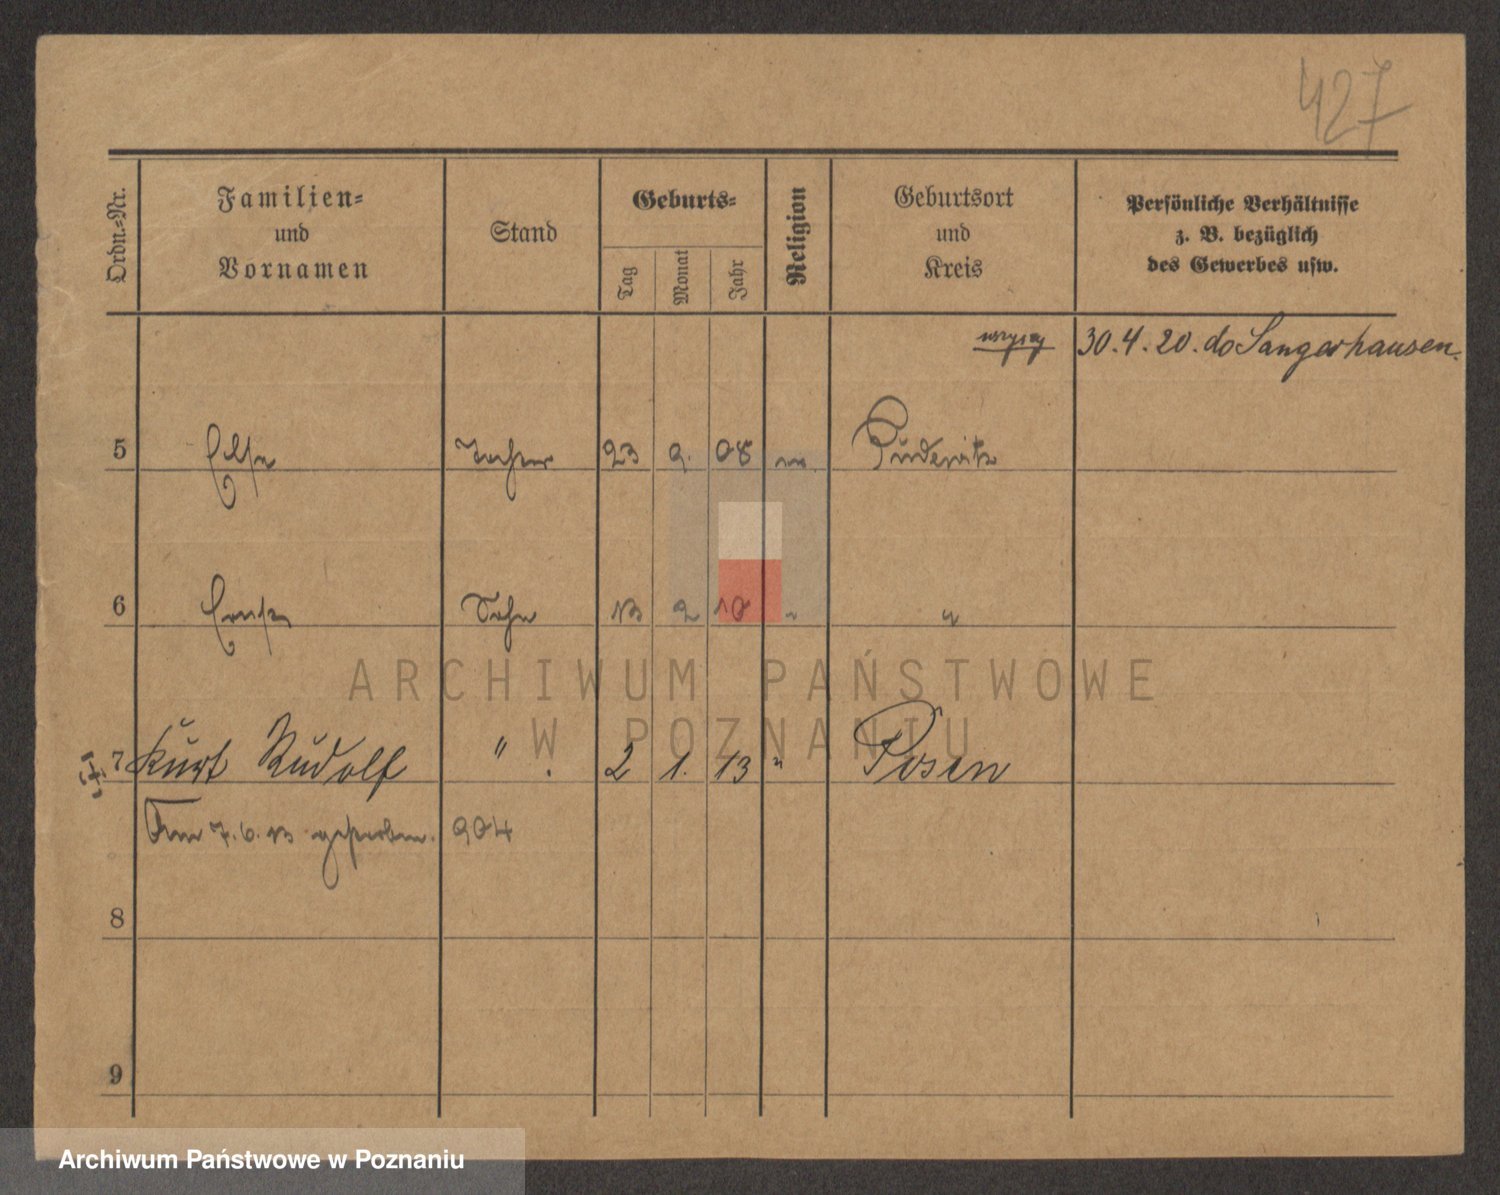 427
Ordn.=Nr.
Familien=
und
Vornamen
Stand
Geburts=
Tag
Monat
Jahr
Religion
Geburtsort
und
Kreis
Persönliche Verhältnisse
z. B. bezüglich
des Gewerbes usw.
wszyscy 30.4.20. do Sangerhausen.
5 Else Tochter 23 9. 08 Pudewitz
6 Sohn 13 2 10 " "
7 Kurt Rudolf " 2 1. 13 " Posen
Am 7.6.13 gestorben. 904
8
9
ARCHIWUM PAŃSTWOWE
W POZNANIU
Archiwum Państwowe w Poznaniu